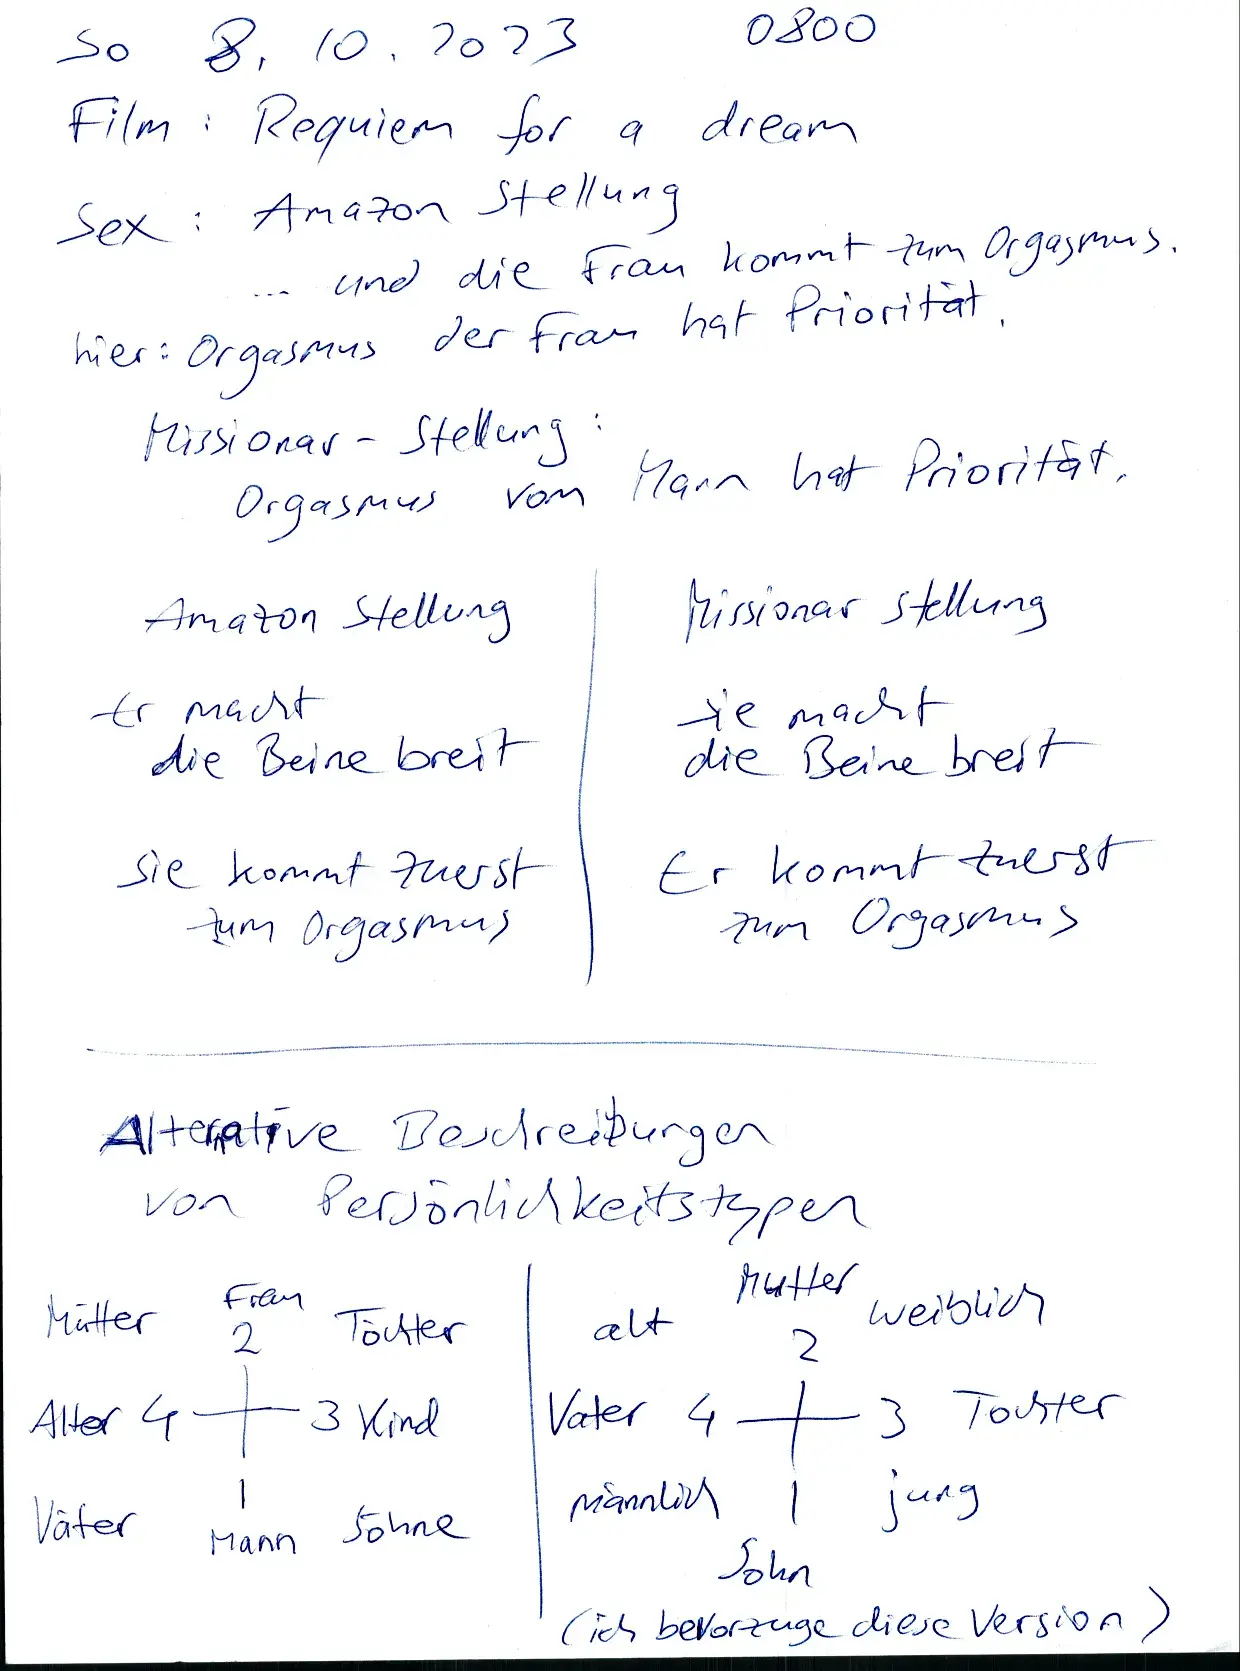 So 8.10.2023 0800
Film: Requiem for a dream
Sex: Amazon Stellung
... und die Frau kommt zum Orgasmus.
hier: Orgasmus der Frau hat Priorität.
Missionar-Stellung:
Orgasmus vom Mann hat Priorität.
Amazon Stellung
Er macht
die Beine breit
Sie kommt zuerst
zum Orgasmus
Missionar stellung
Sie macht
die Beine breit
Er kommt zuerst
zum Orgasmus
Alternative Beschreibungen
von Persönlichkeitstypen
Mütter Frau Töchter
2
Alter 4 3 Kind
1
Väter Mann Söhne
alt Mutter weiblich
2
Vater 4 3 Tochter
männlich 1 jung
Sohn
(ich bevorzuge diese Version)